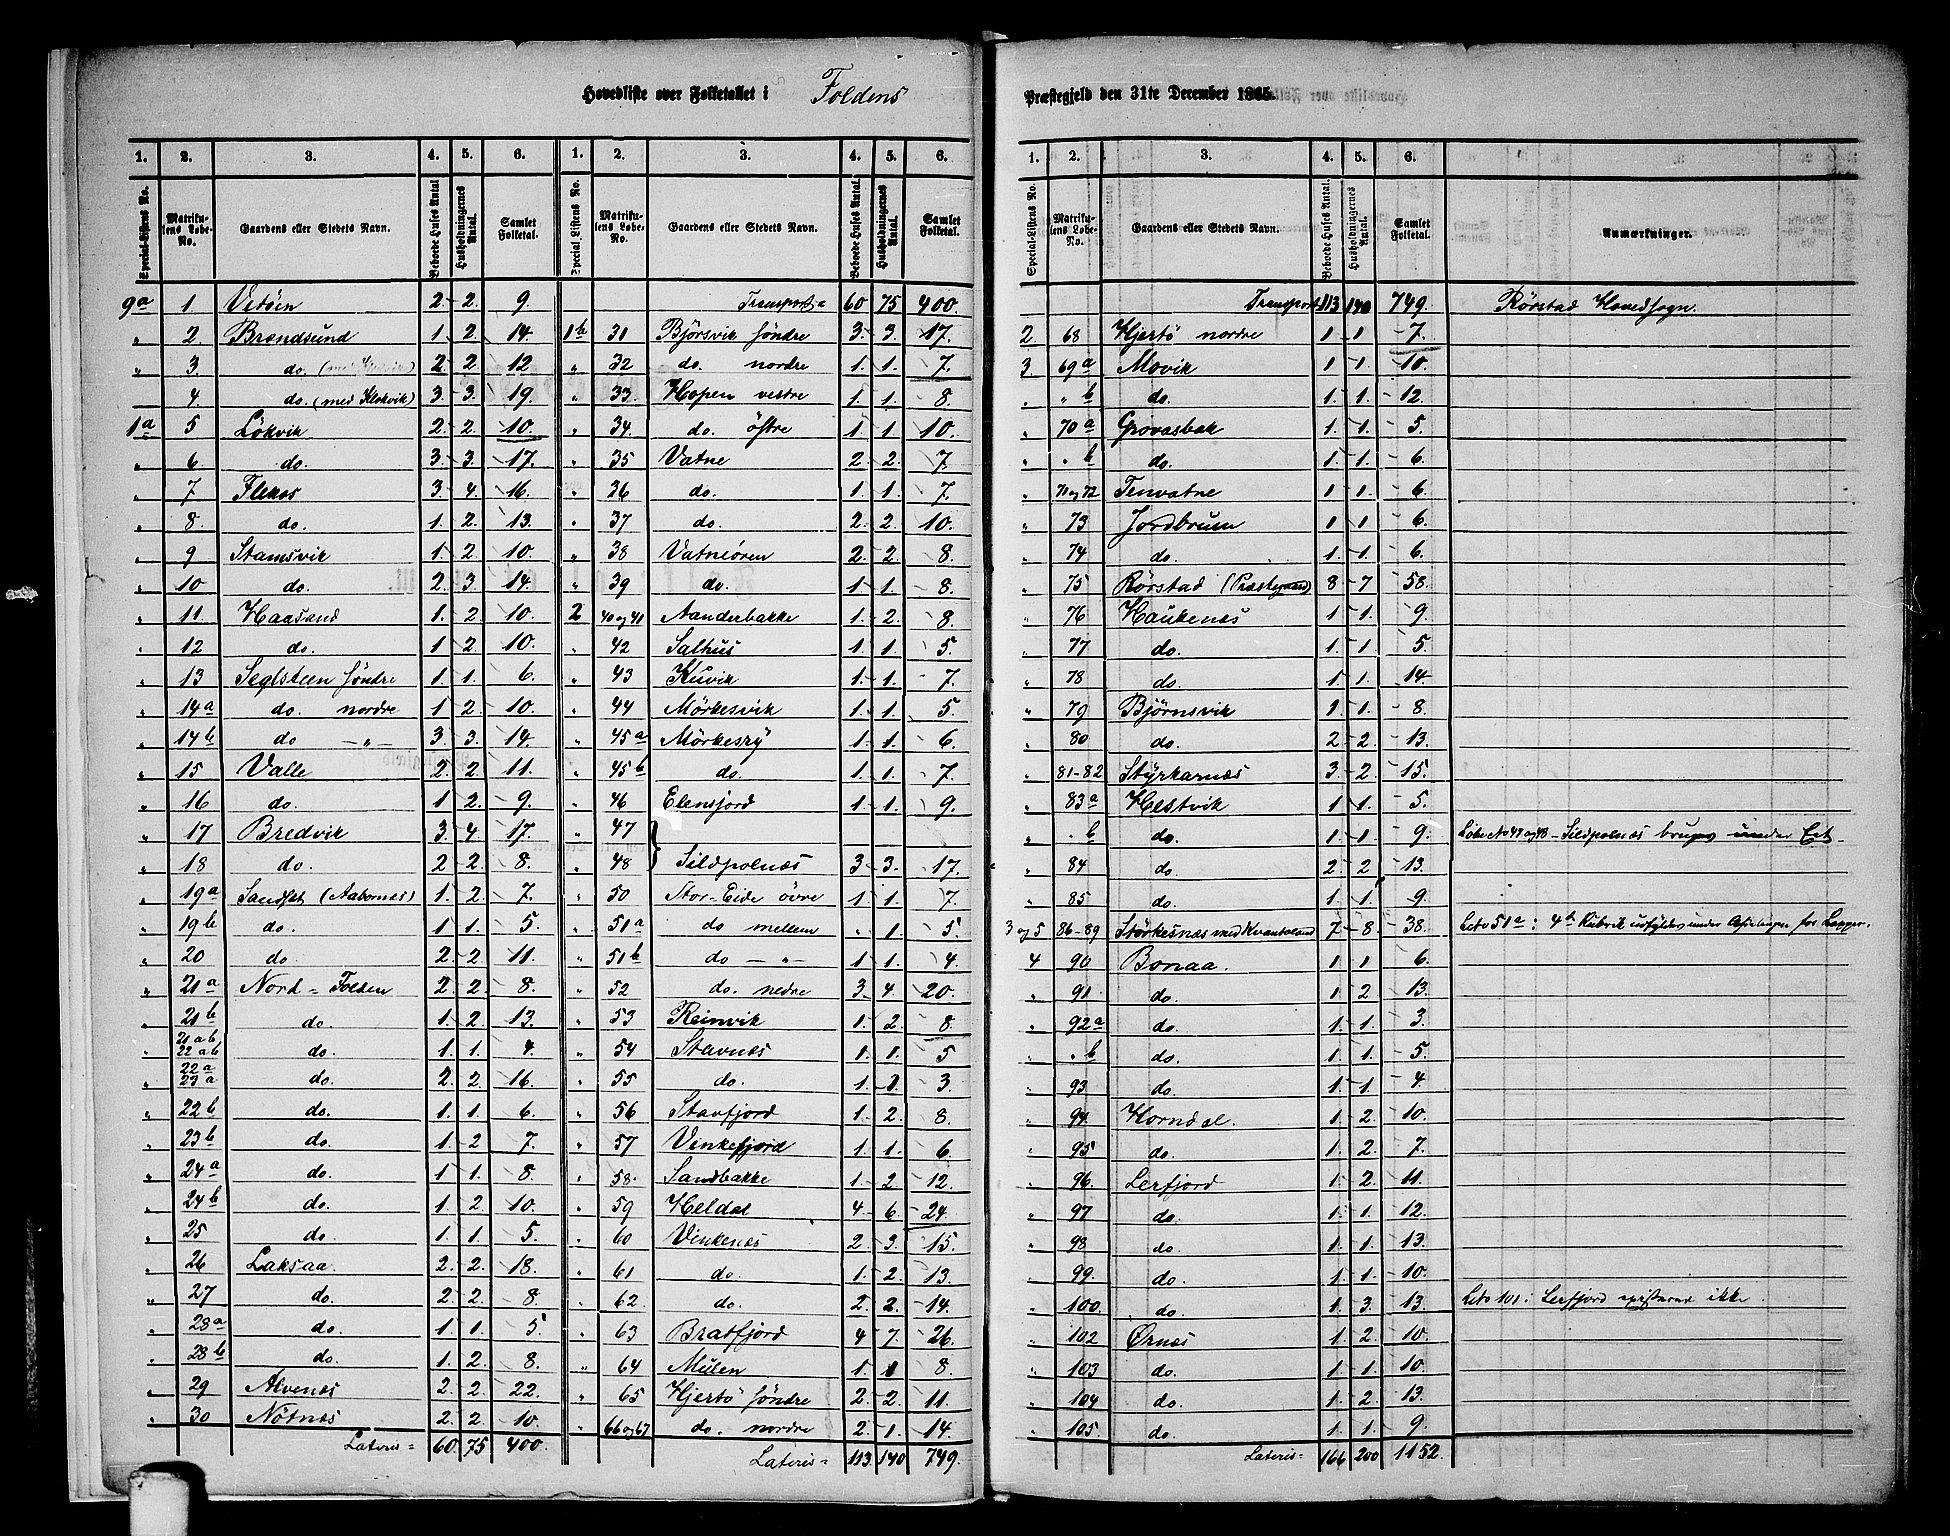 Hovedliste over Folketallet i Foldens Præstegjeld den 31te December 1865.
1. 2. 3. 4. 5. 6. 1. 2. 3. 4. 5. 6.
Special-Listens No. Matrikulens Løbe-No. Gaardens eller Stedets Navn. Beboede Huses Antal Husholdningernes Antal. Samlet Folketal. Special-Listens No. Matrikulens Løbe-No. Gaardens eller Stedets Navn. Beboede Huses Antal. Husholdningernes Antal. Samlet Folketal.
9a 1 Vetöen 2 2 9.
" 2. Brændsund 1 2 14.
" 3. do. 2 2. 12
" 4. do. (med Klokvik) 3 3. 19.
1a 5 Lökvik 2 2. 10.
" 6 do. 3 3. 17.
" 7 Fleknes 3 4. 16.
" 8. do. 1. 2. 13.
" 9 Stamsvik 1. 2. 10.
" 10 do. 2. 3. 14.
" 11. Haasand 1. 2. 10.
" 12 do. 1 2. 10.
" 13 Seglsteen söndre 1. 1. 6.
" 14a do. nordre 1 2. 10.
" 14b do —"— 3. 3. 14.
" 15 Valle 2. 2. 11.
" 16 do. 1 2. 9.
" 17 Bredvik 3. 4. 17.
" 18 do. 2 2. 8.
" 19a Sandset (Aabornæs) 1. 2. 7.
" 19b do. 1 1. 5.
" 20 do 2 2. 11.
" 21a Nord-Folden 2. 2. 8.
" 21b do. 1. 2. 13.
" 21ab 22ab do. 1. 1. 4.
" 22a 23a do. 2. 2. 16.
" 22b do. 1. 1. 6.
" 23b do. 1. 2 7.
" 24a do. 1 1. 8.
" 24b do. 1. 2 10.
" 25 do. 1. 1. 5.
" 26 Laksaa. 2. 2. 18.
" 27 do. 2. 2. 8.
" 28a do. 1. 1. 5.
" 28b do. 1. 2. 8.
" 29 Alvenæs 2. 2. 22.
" 30 Nötnæs 2. 2. 10.
Lateris = 60. 75 400.
Transport = 60 75 400.
1b 31 Björsvik söndre 3. 3. 17.
" 32 do. nordre 1. 1. 7.
" 33. Hopen vestre 1. 1. 8.
" 34. do. östre 1 1. 10.
" 35 Vatne 2 2. 7.
" 36 do. 1. 1. 7.
" 37 do. 2. 2. 10.
" 38 Vatneören 2. 2. 8.
" 39 do. 1. 1. 8.
2 40 og 41 Aanderbakke 1. 2. 8.
" 42 Salhus 1. 1. 5.
" 43 1. 1. 7.
" 44 Mörkesvik 1. 1. 5.
" 45a Mörkesry 1. 1. 6.
" 45b do. 1. 1. 7.
" 46 Elensfjord 1. 1. 9.
" 47
" 48 Sildpolnæs 3 3. 17.
" 50 Stor-Eide övre 1. 1. 7.
" 51a do mellem " 1. 5.
" 51b do —"— 1. 1. 4.
" 52 do. nedre 3. 4. 20.
" 53 Reinvik 1. 2. 8.
" 54 Stavnæs 1. 1. 5
" 55 do. 1. 1. 3.
" 56 Stavfjord 1. 2. 8.
" 57 Vinkefjord 1. 1. 6.
" 58. Sandbakke 1. 2. 12.
" 59 Heldal 4. 6. 24.
" 60 Vinkenæs 2. 3. 15.
" 61 do. 1. 2. 13.
" 62. do. 2. 2. 14.
" 63 Bratfjord 4 7. 26.
" 64 Mulen 1. 1 8.
" 65 Hjertö söndre 2. 2. 11.
" 66 og 67 do. nordre 2. 1. 14.
Lateris = 113. 140 749.
1. 2. 3. 4. 5. 6.
Special-Listens No. Matrikulens Løbe-No. Gaardens eller Stedets Navn. Beboede Huses Antal. Husholdningernes Antal. Samlet Folketal. Anmærkninger.
Transport 113 140 749. Rörstad Hovedsogn.
2. 68 Hjertö nordre 1 1 7.
3. 69a Movik 1 1. 10.
" " b do. 1. 1. 12.
" 70a Grovasbak 1. 1. 5.
" " b do. 1. 1. 6.
" 71 og 72 Tenvatne 1 1. 6.
" 73 Jordbrum 1 1. 6.
" 74 do. 1. 1. 6.
" 75 Rörstad (Præstegaard) 8 7 58.
" 76 Haukenæs 1. 1. 9.
" 77 do. 1. 1. 5.
" 78 do. 1. 1. 14.
" 79 Björnsvik 1. 1. 8.
" 80 do. 2 2. 13.
" 81-82 Styrkarnæs 3. 2. 15.
" 83a Hestvik 1 1. 5.
" " b do. 1. 1. 9. Löbe No 47 og 48 - Sildpolnæs bruges under Et.
" 84 do. 2. 2 13.
" 85 do. 1. 1. 9.
3 og 5 86-89 Störkesnæs med Kvanteland 7 8. 38. Litr 51a: 4de Rubrik udfyldes under for
4 90 Bonaa. 1 1 6.
" 91. do. 1. 2 13.
" 92a do. 1 1. 3.
" " b do. 1 1. 5.
" 93 do. 1 1. 4
" 94 Horndal. 1. 2. 10.
" 95 do. 1. 2. 7.
" 96 Lerfjord 1. 2. 11.
" 97 do. 1. 1. 12.
" 98 do. 1. 1. 13.
" 99. do. 1. 1. 10.
" 100. do. 1. 3. 13. Litr 101: Lerfjord existerer ikke.
" 102 Örnæs 1. 2. 10.
" 103 do. 1 1. 10.
" 104 do. 1. 2 13.
" 105. do. 1. 1. 9.
Lateris = 166 200 1152.